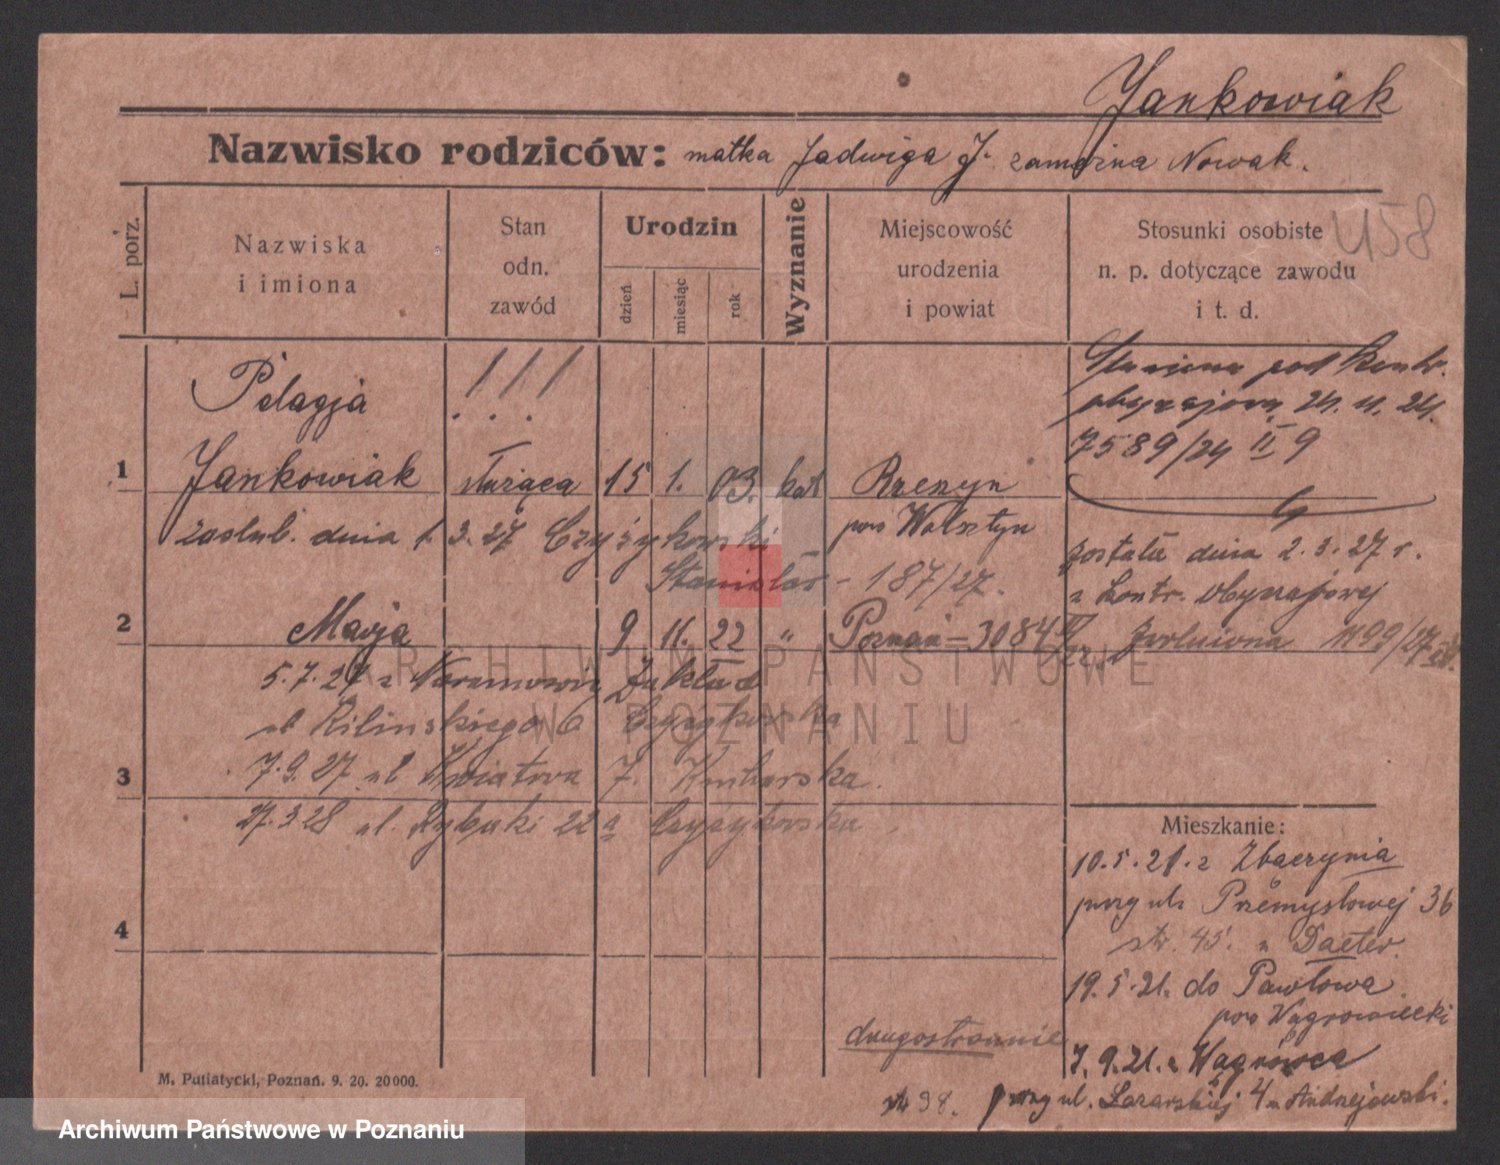 Jankowiak
Nazwisko rodziców: matka Jadwiga J. zamężna Nowak.
458
L. porz.
Nazwiska i imiona
Stan odn. zawód
Urodzin
dzień
miesiąc
rok
Wyznanie
Miejscowość urodzenia i powiat
Stosunki osobiste n. p. dotyczące zawodu i t. d.
Pelagja
! ! !
pod Kontr.
obyczajową 24. 11. 24.
7589/24 II 9
1 Jankowiak służąca 15 1. 03. kat
pow Wolsztyn
zaślub. dnia 1. 3. 27 Czyżykowski
Stanisław - 187/27.
została dnia 2. 3. 27 r.
z Kontr. obyczajowej
zwolniona
2 Marja 9 11. 22 " Poznań = 3084
5.7.27 z Naramowic Zakład
ul Kilińskiego 6 Czyżykowska
3 7.9.27 ul Kwiatowa 7. Kucharska.
27.3.28 ul. Rybaki 22a Czyżykowska
4
Mieszkanie:
10.5.21. z Zbączynia
przy ul. Przemysłowej 36
str. 45. u Daeter.
19.5.21. do Pawłowa
pow Wągrowiecki
7.9.21. z Wągrówca
przy ul. Łazarskiej 4 u Andrzejewski.
drugostronnie
M. Putiatycki, Poznań. 9. 20. 20000.
ARCHIWUM PAŃSTWOWE
W POZNANIU
Archiwum Państwowe w Poznaniu